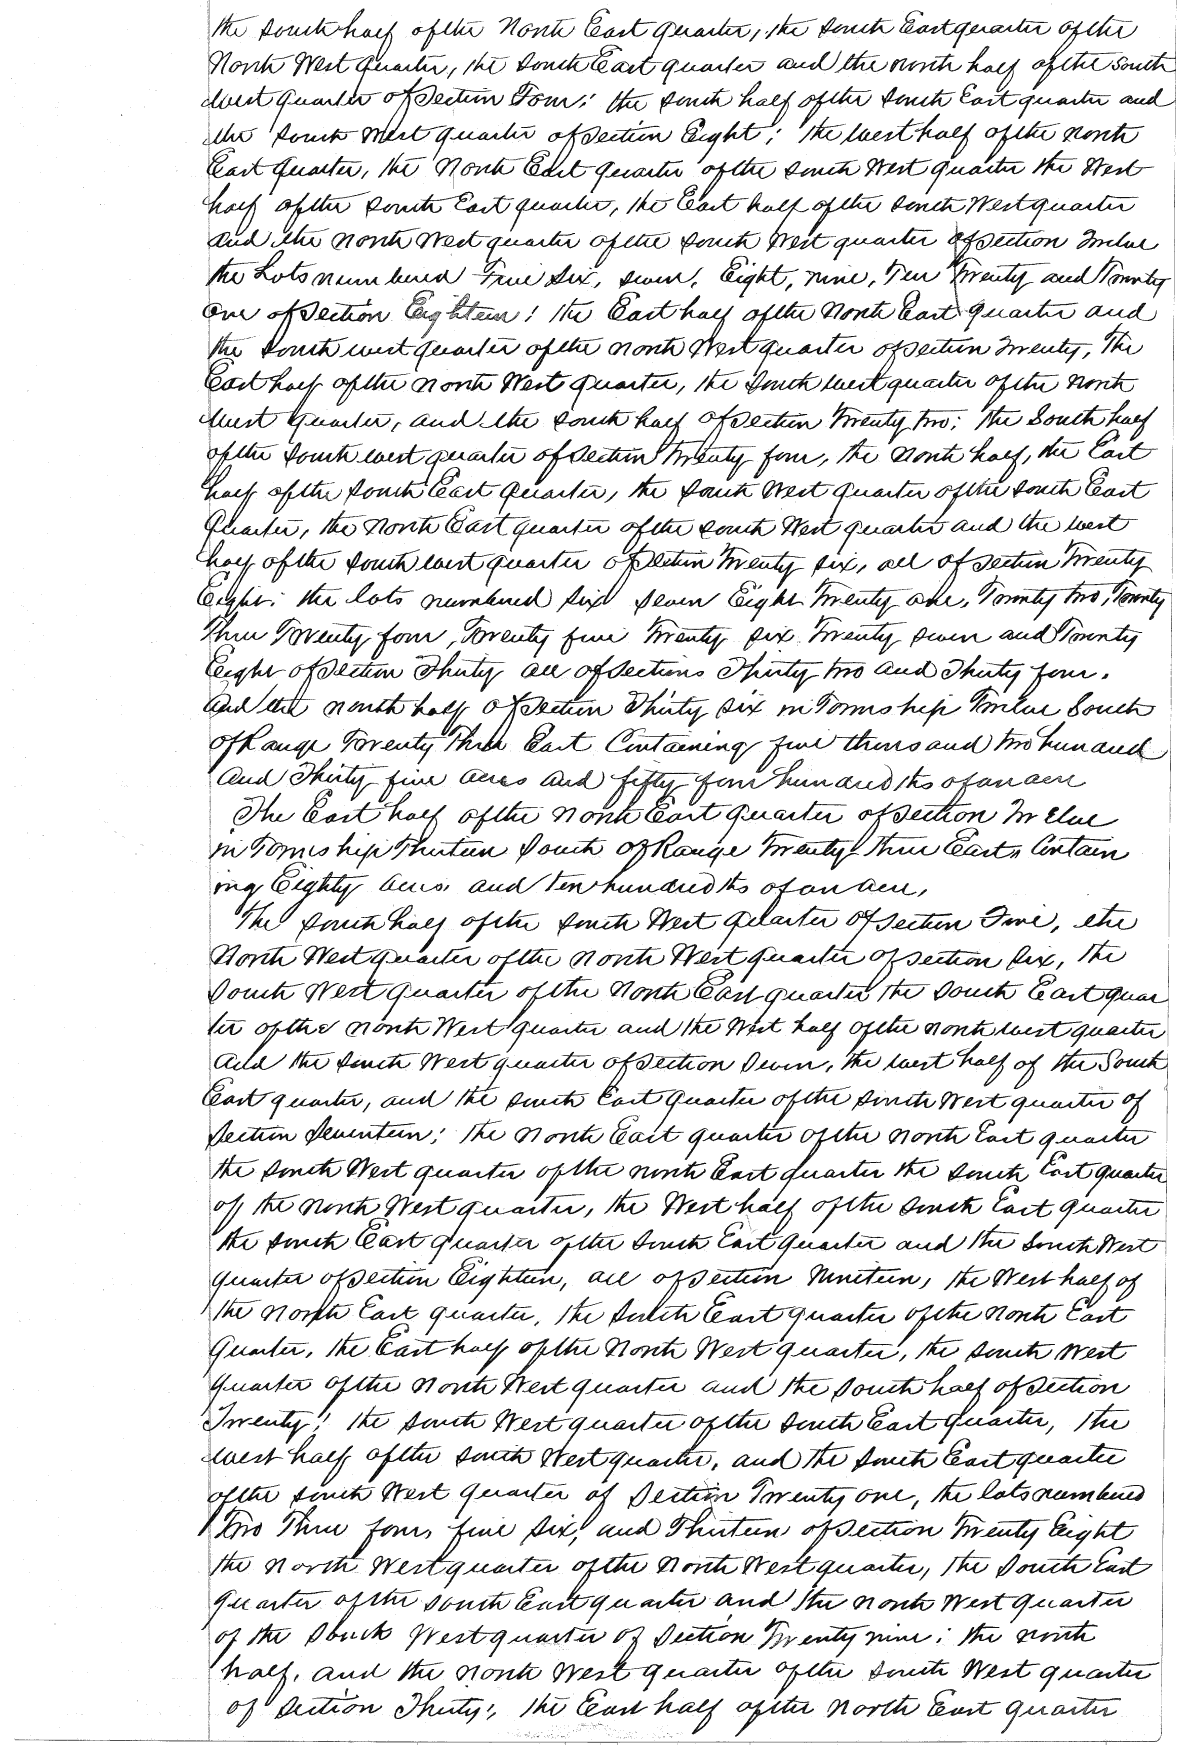 the south half of the North East quarter, the South East quarter of the
North West quarter, the South East quarter and the north half of the South
West quarter of Section Four; the south half of the South East quarter and
the South West quarter of Section Eight; the West half of the North
East quarter, the North East quarter of the South West quarter the West
half of the South East quarter, the East half of the South West quarter
and the North West quarter of the South West quarter of Section Twelve
the Lots numbered Five Six, seven, Eight, nine, Ten Twenty and Twenty
one of Section Eighteen; the East half of the North East quarter and
the South west quarter of the North West quarter of Section Twenty, The
East half of the North West quarter, the South West quarter of the North
West quarter, and the south half of Section Twenty two; the South half
of the South West quarter of Section Twenty four, the North half, the East
half of the South East quarter, the South West quarter of the South East
Quarter, the North East quarter of the South West quarter and the West
half of the South West quarter of Section Twenty six, all of Section Twenty
Eight; the lots numbered six seven Eight Twenty one, Twenty two, Twenty
Three Twenty four, Twenty five Twenty six Twenty seven and Twenty
Eight of Section Thirty all of Sections Thirty two and Thirty four.
And the north half of Section Thirty six in Township Twelve South
of Range Twenty Three East Containing five thousand two hundred
and Thirty five acres and fifty four hundredths of an acre
The East half of the North East quarter of Section Twelve
in Township Thirteen South of Range Twenty Three East, Contain
ing Eighty acres and ten hundredths of an acre,
The South half of the South West quarter of Section Five, the
North West quarter of the North West quarter of Section Six, the
South West quarter of the North East quarter the South East quar
ter of the North West quarter and the West half of the North West quarter
and the South West quarter of Section Seven, the West half of the South
East quarter, and the South East quarter of the South West quarter of
Section Seventeen; the North East quarter of the North East quarter
the South West quarter of the North East quarter the South East quarter
of the North West quarter, the West half of the South East quarter
the South East quarter of the South East quarter and the South West
quarter of Section Eighteen, all of Section Nineteen, the West half of
the North East quarter, the South East quarter of the North East
Quarter, the East half of the North West quarter, the South West
quarter of the North West quarter and the South half of Section
Twenty; the South West quarter of the South East quarter, the
West half of the South West quarter, and the South East quarter
of the South West quarter of Section Twenty one, the lots numbered
Two Three four, five Six, and Thirteen of Section Twenty Eight
the North West quarter of the North West quarter, the South East
quarter of the South East quarter and the North West quarter
of the South West quarter of Section Twenty nine; the north
half, and the North West quarter of the South West quarter
of Section Thirty; the East half of the North East quarter